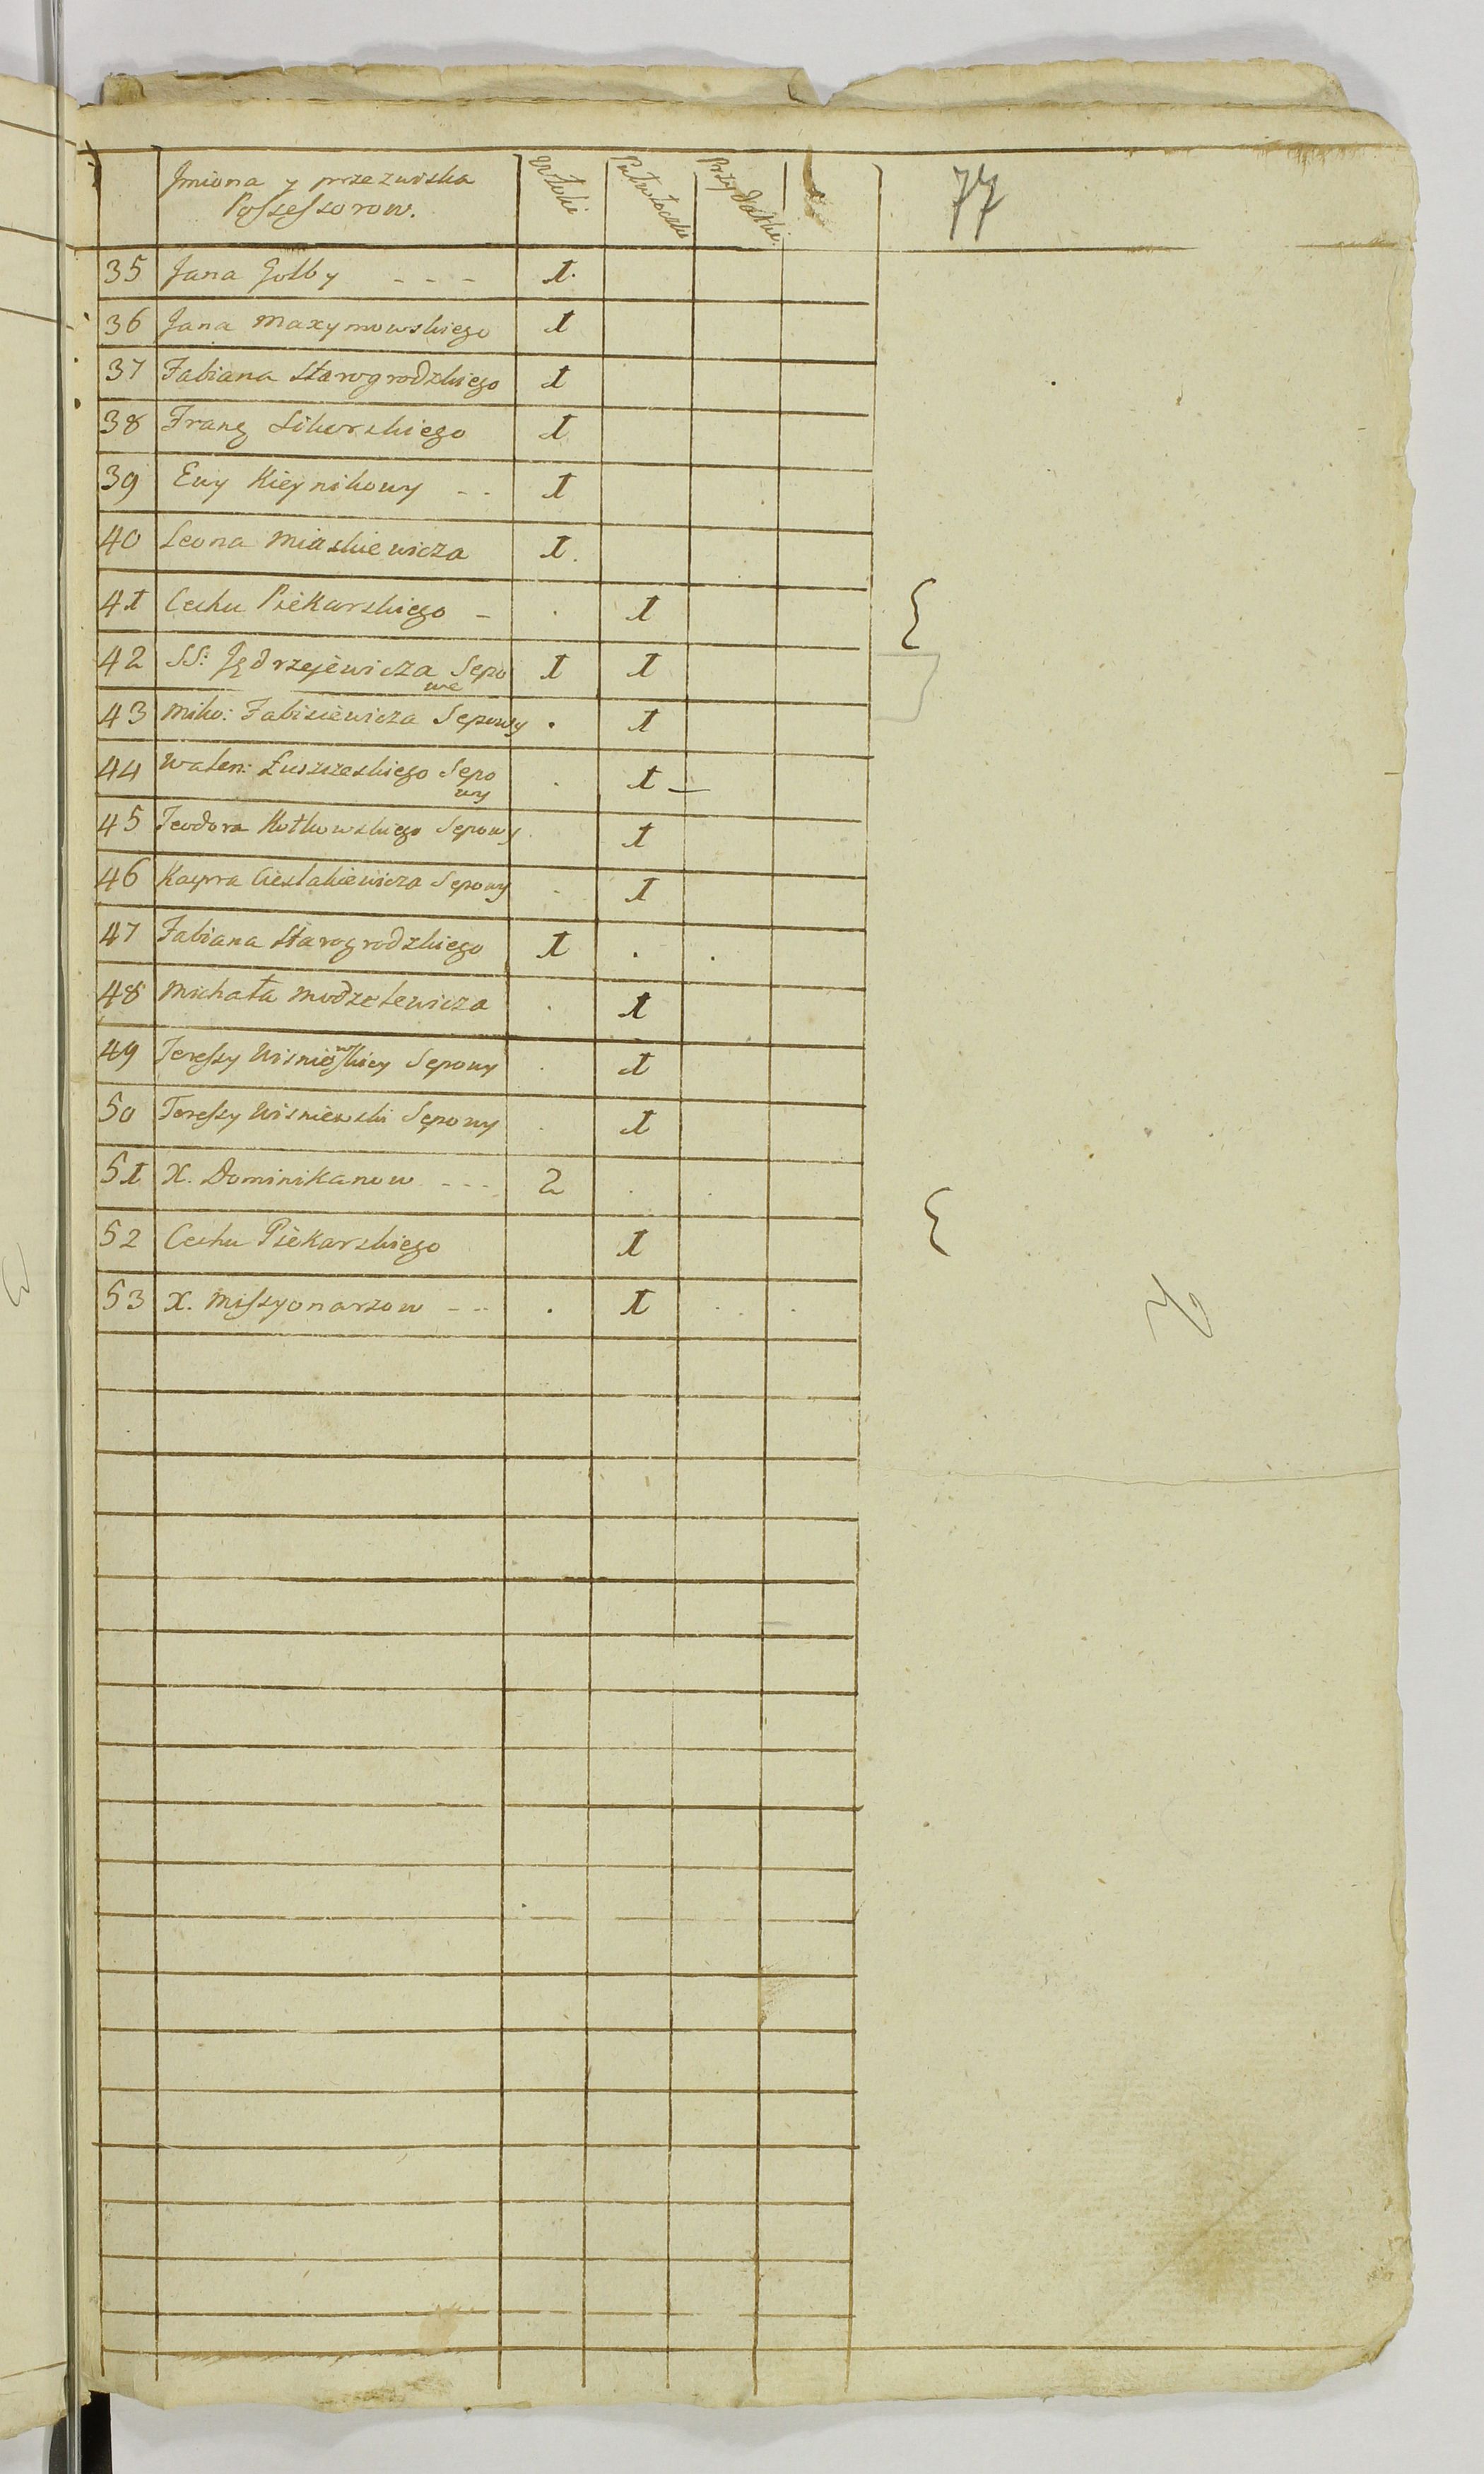 Jmiona y przezwiska
Possessorow.
Włuki
Puł włoczki
Przydatki
77
35 Jana Golby - - - 1.
36 Jana Maxymowskiego 1
37 Fabiana Starogrodzkiego 1
38 Franc Sikorskiego 1
39 Ewy Kieynikowy - - 1
40 Leona Miaskiewicza 1.
41 Cechu Piekarskiego - . 1
42 SS: Jędrzejewicza Sepo 1 1
we
43 Miko: Fabisiewicza Sepowy . 1
44 Walen: Łuszczeskiego Sepo . 1 -
wy
45 Teodora Kotkowskiego Sepowy . 1
46 Kacpra Cieslakiewicza Sepowy . 1
47 Fabiana Starogrodzkiego 1 . .
48 Michała Modzelewicza . 1
49 Teressy Wisniewskiey Sepowy . 1
50 Teressy Wisniewski Sepowy . 1
51 X. Dominikanow - - - 2 . .
52 Cechu Piekarskiego 1
53 X. Missyonarzow - - . 1 . .